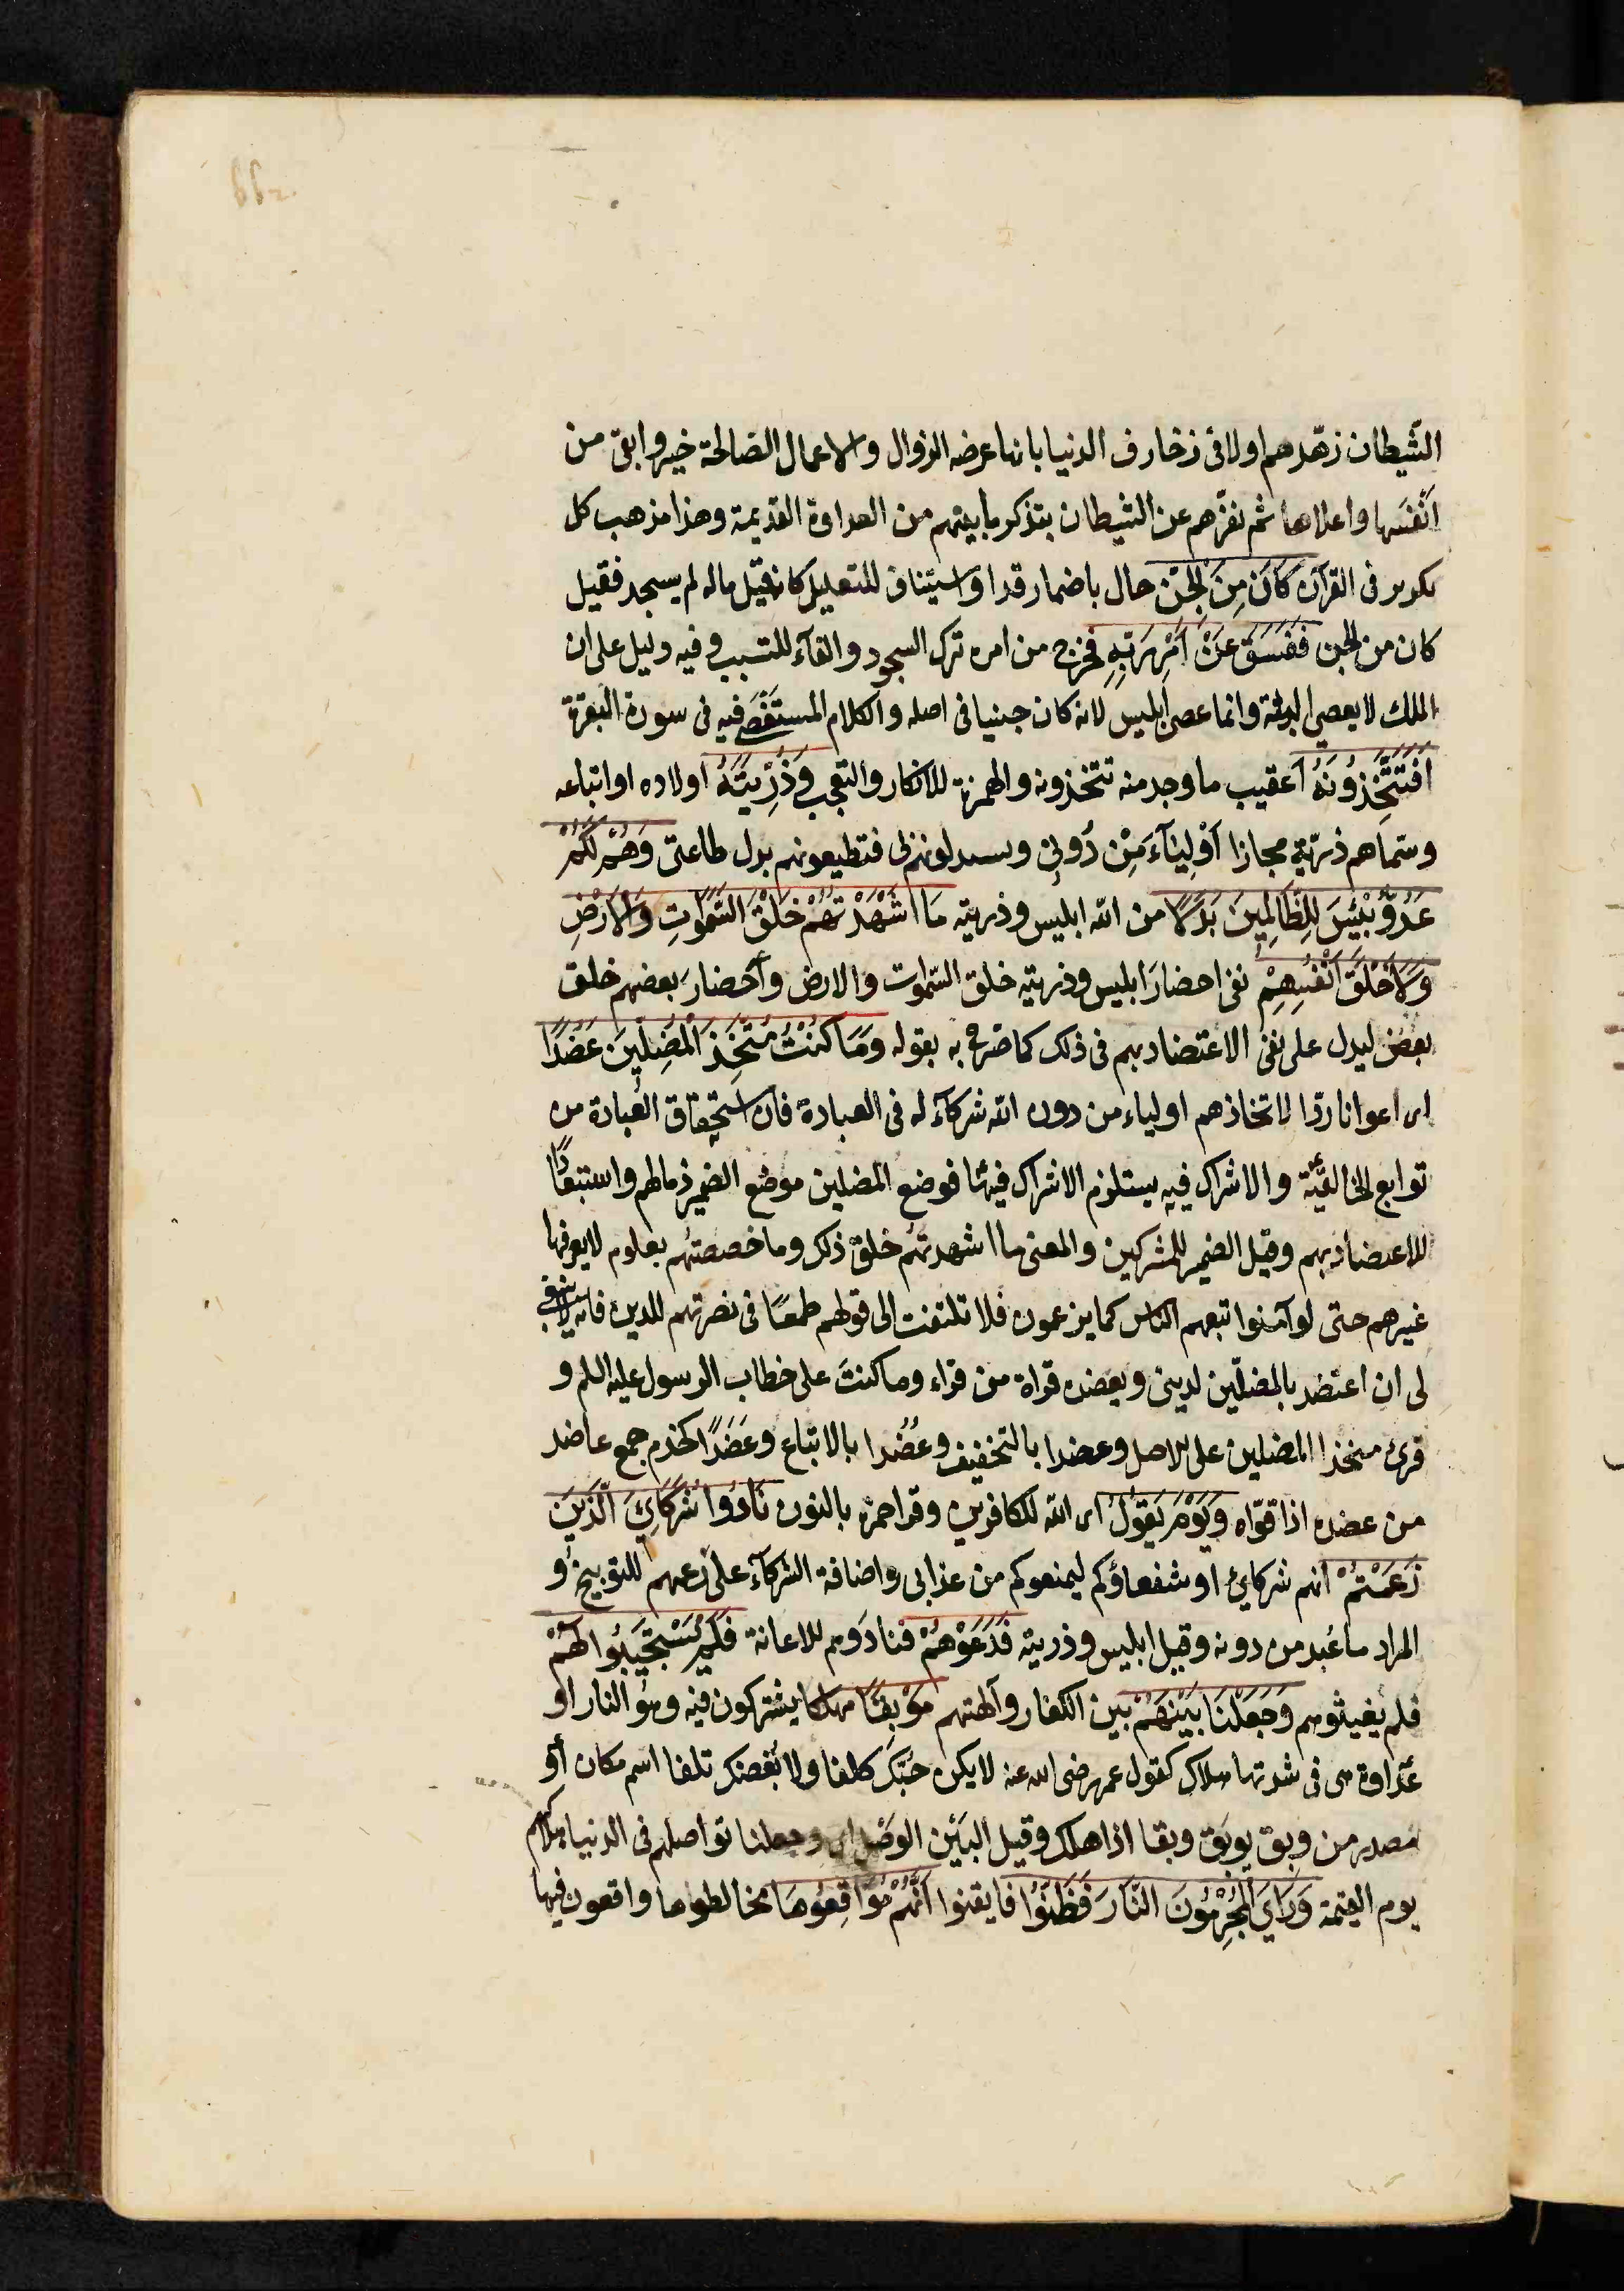 الشّيطان زهّدهم اولا فى زخارف الدنيا بانها عرضه الزوال والاعمال الصّالحة خير وابقى من
اَنْفَسها واعلاها ثم نفرّهم عن الشيطان بتذكر ما بينهم من العداوة القديمة وهذا مذهب كل
تكرير فى القرآن كَانَ مِنَ الْجِنّ حال باضمار قد او استيناف للتعليل كانه قيل ماله لم يسجد فقيل
كان من الجن فَفَسَقَ عَنْ اَمْرِ رَبِّهِ فخرج من امره ترك السجود والفآء للتسبب وفيه دليل على ان
الملك لا يعصى البتة وانما عصى ابليس لانه كان جنيا فى اصله والكلام المستقصى فيه فى سورة البقرة
اَفَتَتَّخِذُونَهُ اَعقيب ما وجد منه تتخذونه والهمزة للانكار والتعجب وَذُرِّيَّتَهُ اولاده او اتباعه
وسّماهم ذرّية مجازا اَوْلِيَآءَ مِنْ دُونِى ويستبدلونهم بى فتطيعونهم بدل طاعتى وَهُمْ لَكُمْ
عَدُوٌّ بِئْسَ لِلظَّالِمِينَ بَدَلًا من الله ابليس وذريته مَا اَشْهَدْتُهُمْ خَلْقَ السَّمٰوَاتِ وَالْاَرْضِ
وَلَا خَلْقَ اَنْفُسِهِمْ نفى احضارَ ابليس وذريته خلق السّموات والارض وَاحضارَ بعضهم خلق
بعض ليدل على نفى الاعتضاد بهم فى ذلك كما صّرح به بقوله وَمَا كُنْتُ مُتَّخِذَ الْمُضِلِّينَ عَضُدًا
اى اعوانا ردّا لاتخاذهم اولياء من دون الله شركآء له فى العبادة فان استحقاق العبادة من
توابع الخالقيّة والاشراك فيه يستلزم الاشراك فيها فوضع المضلين موضع الضمير ذما لهم واستبعادًا
للاعتضاد بهم وقيل الضمير للمشركين والمعنى ما اشهدتهم خلق ذلك وما خصصتهم بعلوم لا يعرفها
غيرهم حتى لو آمنوا تبعهم الناس كما يزعمون فلا تلتفت الى قولهم طمعًا فى نصرتهم للدين فانه لا ينبغى
لى ان اعتضد بالمضلّين لدينى ويعضده قراة من قراء وما كنتَ على خطاب الرسول عليه السلم و
قرئ متخذا المضلين على الاصل وعضدا بالتخفيف وعُضُدا بالاتباع وعَضَدًا كخدم جمع عاضد
من عضده اذا قوّاه وَيَوْمَ يَقُولُ اى الله للكافرين وقرا حمزة بالنون نَادُوا شُرَكَائِيَ الَّذِينَ
زَعَمْتُمْ انهم شركائ او شفعاؤكم ليمنعوكم من عذابى واضافة الشركآء على زعمهم للتوبيخ و
المراد ما عُبد من دونه وقيل ابليس وذريته فَدَعَوْهُمْ فنادَوهم للاعانة فَلَمْ يَسْتَجِيبُوا لَهُمْ
فلم يغيثوهم وَجَعَلْنَا بَيْنَهُمْ بين الكفار وآلهتهم مَوْبِقًا مهلكا يشتركون فيه وهو النار او
عداوة هى فى شدتها هلاك كقول عمر رضى الله عنه لا يكن حبّك كلفا ولا بُغضك تلفا اسم مكان أو
مصدر من وبق يوبق وبقا اذا هلك وقيل البَين الوصْل اى وجعلنا تواصلهم فى الدنيا هلاكهم
يوم القيمة وَرَاَىَ الْمُجْرِمُونَ النَّارَ فَظَنُّوا فايقنوا اَنَّهُمْ مُوَاقِعُوهَا مخالطوها واقعون فيها